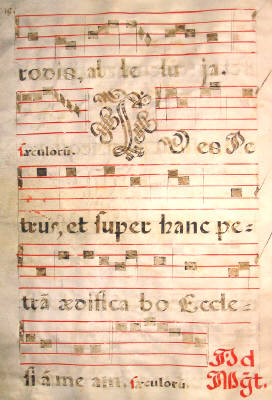 rodis, al le lu ja.
sæculorũ. TV es Pe
trus, et super hanc pe=
trã ædifica bo Eccle=
si ã me am. sæculorũ. Ad
Mag̃t.